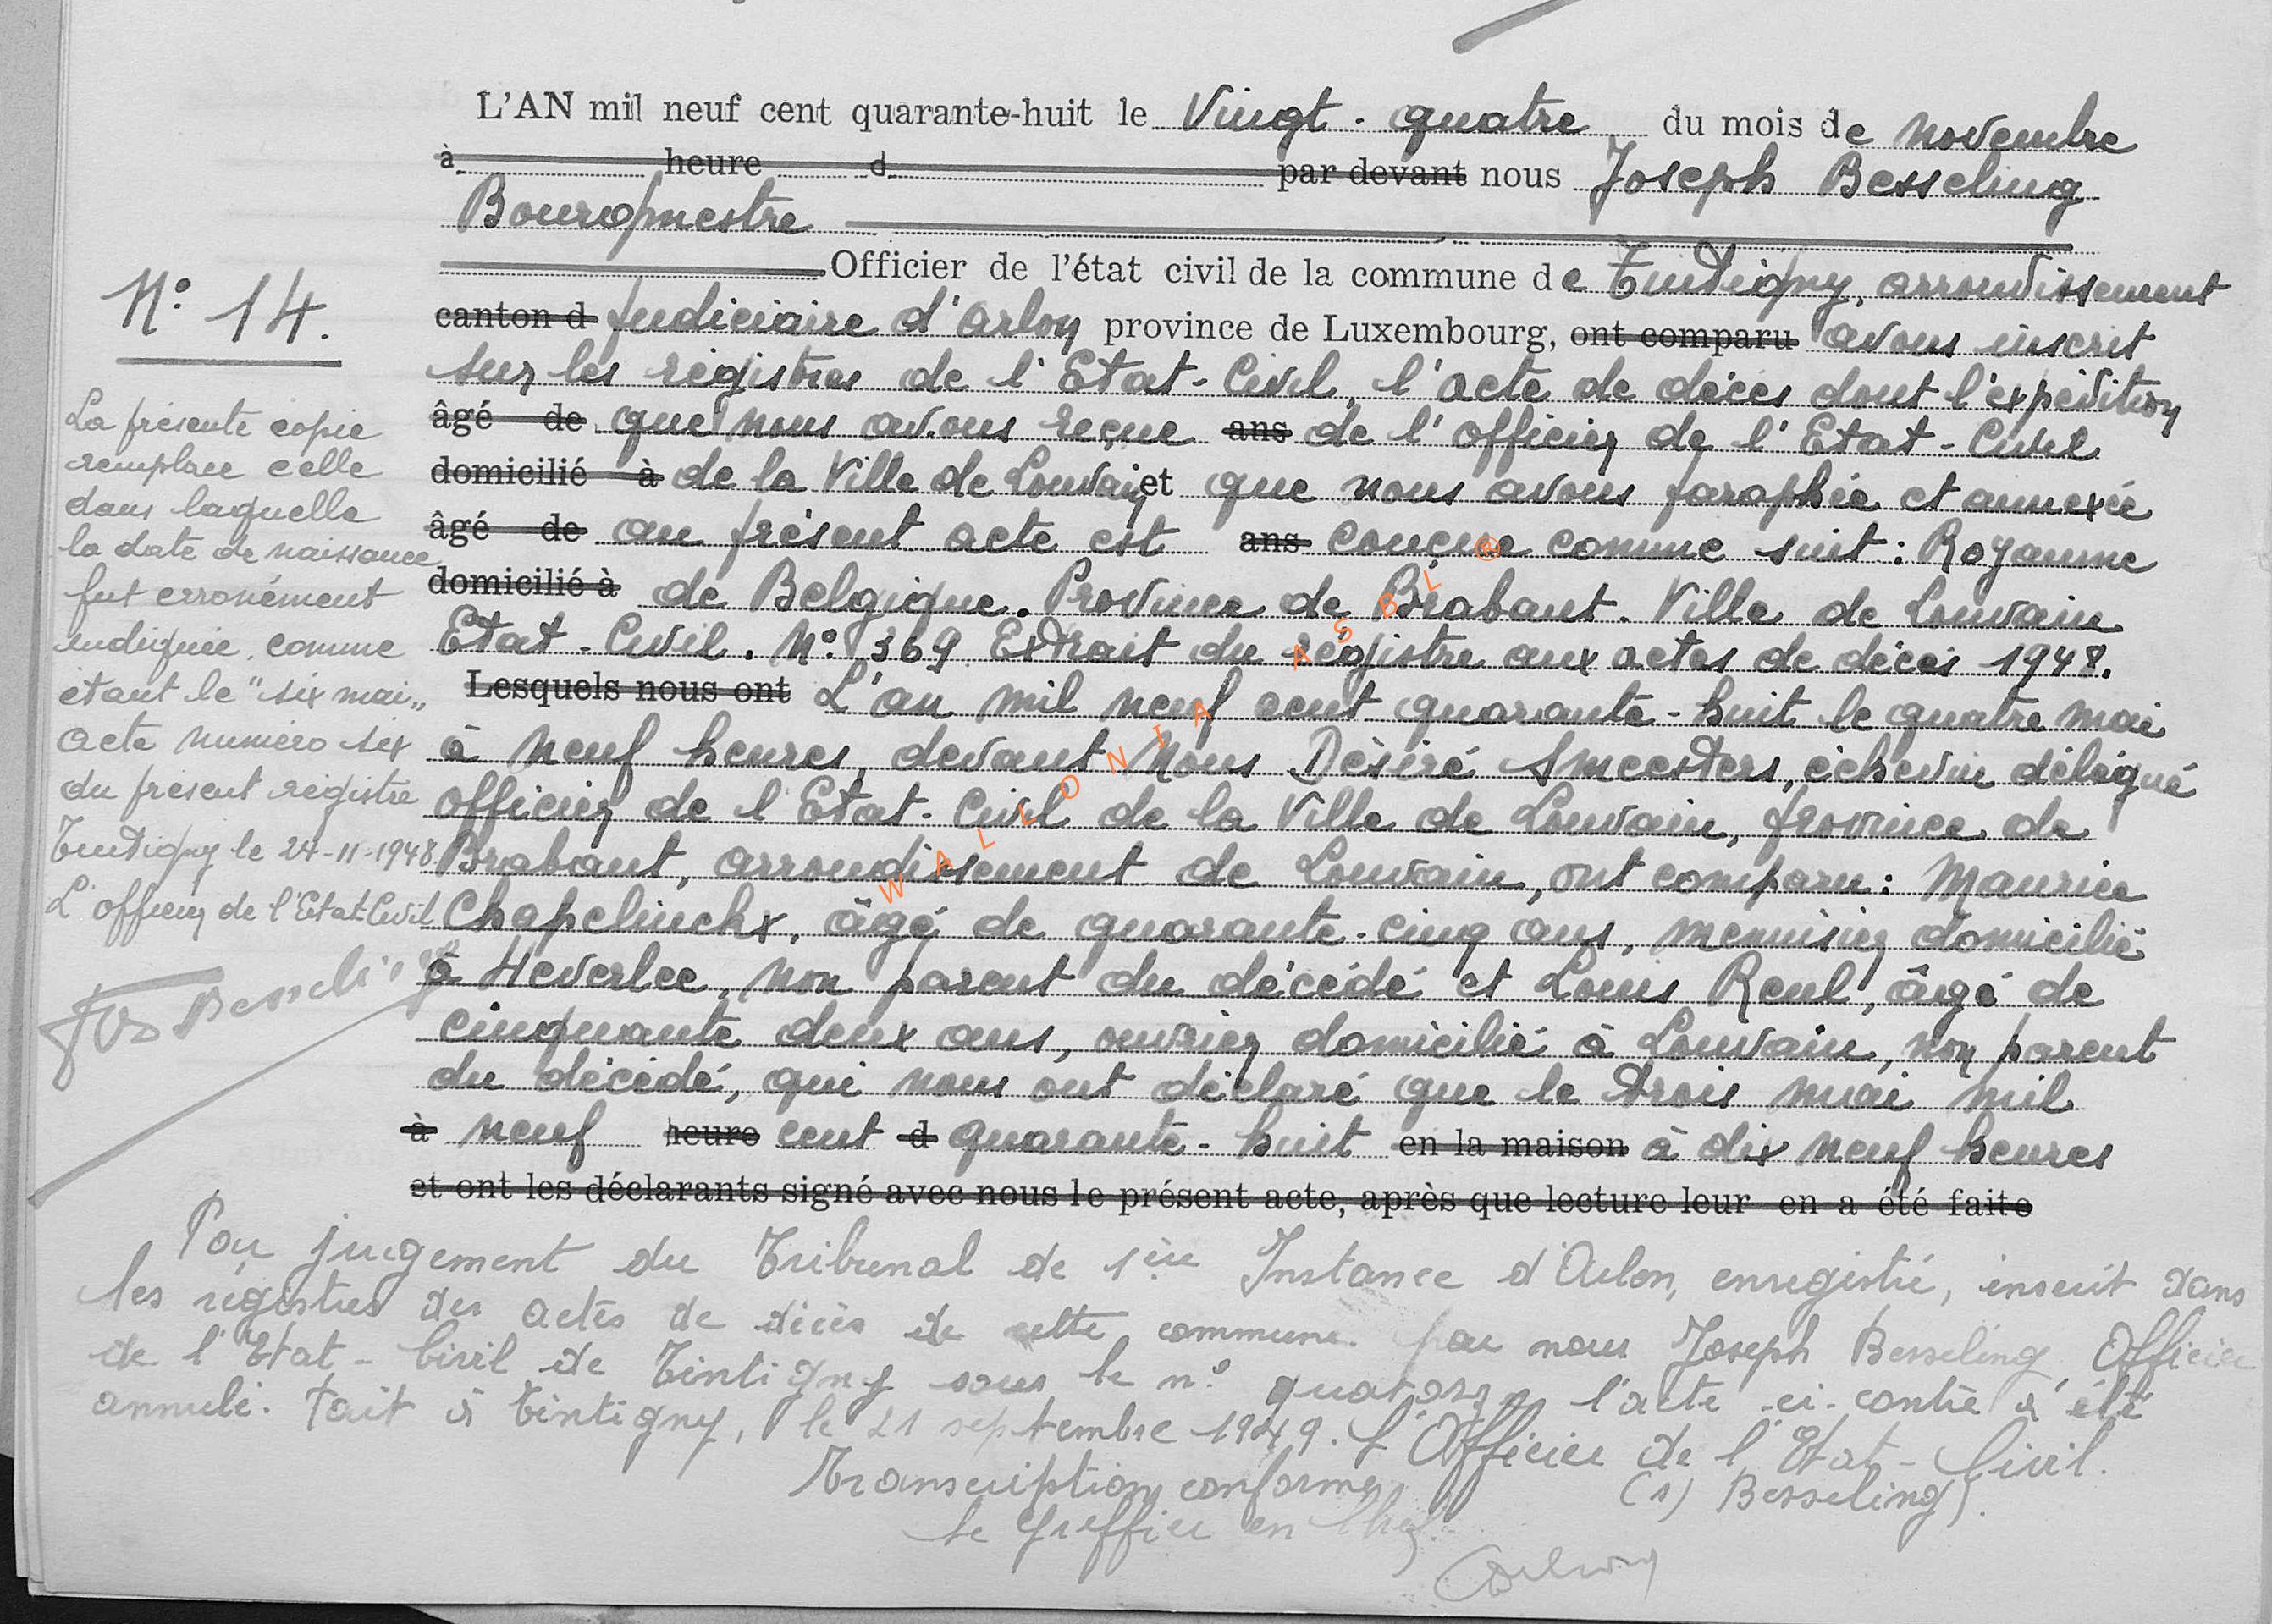 L'AN mil neuf cent quarante-huit le Vingt-quatre du mois de novembre
à heure d par devant nous Joseph Besseling
Bourgmestre
Officier de l'état civil de la commune de Tintigny, arrondissement
canton d judiciaire d'Arlon province de Luxembourg, ont comparu avons inscrit
sur les régistres de l'Etat-Civil, l'acte de décès dont l'expédition
âgé de que nous avons reçue ans de l'officier de l'Etat-Civil
domicilié à de la Ville de Louvain et que nous avons paraphée et annexée
âgé de au présent acte est ans conçue comme suit : Royaume
domicilié à de Belgique. Province de Brabant. Ville de Louvain
Etat-Civil. N° 369 Extrait du régistre aux actes de décès 1948.
Lesquels nous ont L'an mil neuf cent quarante-huit le quatre mai
à neuf heures, devant Nous Désiré Smeesters, échevin délégué
officier de l'Etat-Civil de la Ville de Louvain, province de
Brabant, arrondissement de Louvain, ont comparu : Maurice
Chapelinckx, âgé de quarante-cinq ans, menuisier domicilié
à Heverlee, non parent du décédé et Louis Reul, âgé de
cinquante deux ans, ouvrier domicilié à Louvain, non parent
du décédé, qui nous ont déclaré que le trois mai mil
à neuf heure cent d quarante-huit en la maison à dix neuf heures
et ont les déclarants signé avec nous le présent acte, après que lecture leur en a été faite
N° 14.
La présente copie
remplace celle
dans laquelle
la date de naissance
fut erronément
indiquée comme
étant le "six mai"
acte numéro six
du présent régistre
Tintigny le 24-11-1948.
L'officier de l'Etat-Civil
Jos Besseling
Par jugement du Tribunal de 1ère Instance d'Arlon, enregistré, inscrit dans
les régistres des actes de décès de cette commune par nous Joseph Besseling, Officier
de l'Etat-Civil de Tintigny sous le n° quatorze l'acte ci-contre a été
annulé. Fait à Tintigny, le 21 septembre 1949. L'Officier de l'Etat-Civil.
Transcription conforme (s) Besseling).
Le Greffier en Chef
WALLONIA ASBL ®